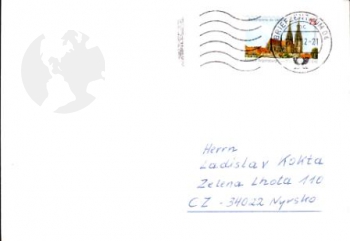 Herrn
Ladislav Kokta
Zelena Lhota 110
CZ - 34022 Nyrsko